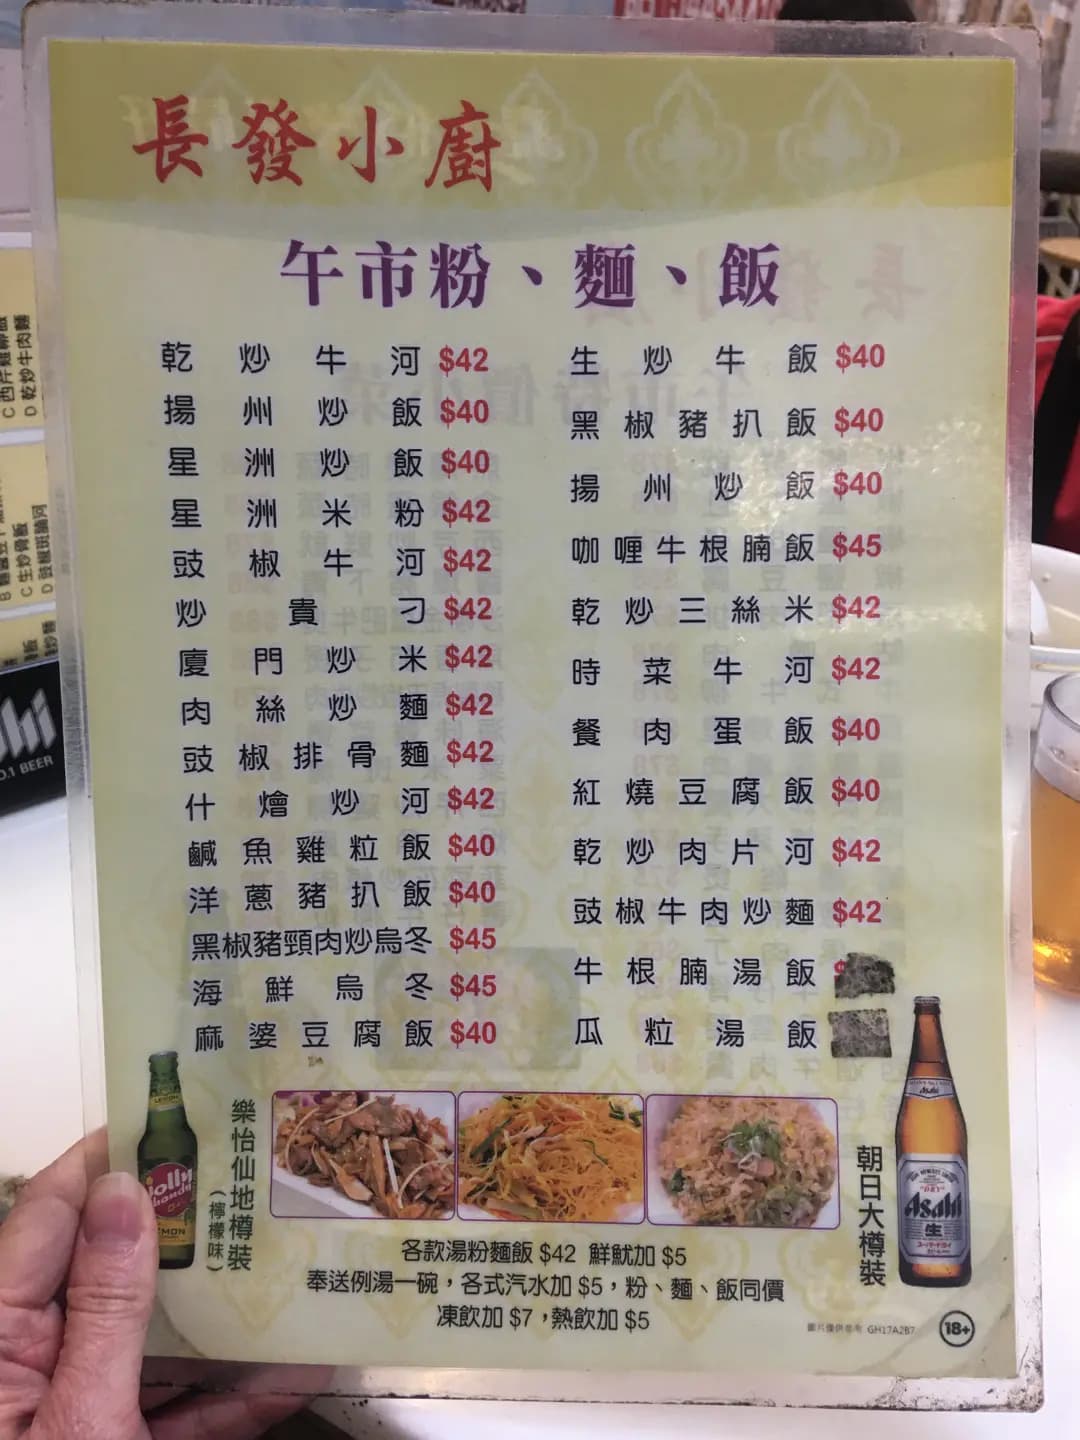 長發小廚
午市粉、麵、飯
乾炒牛河 $42
揚州炒飯 $40
星洲炒飯 $40
星洲米粉 $42
豉椒牛河 $42
炒貴刁 $42
廈門炒米 $42
肉絲炒麵 $42
豉椒排骨麵 $42
什燴炒河 $42
鹹魚雞粒飯 $40
洋蔥豬扒飯 $40
黑椒豬頸肉炒烏冬 $45
海鮮烏冬 $45
麻婆豆腐飯 $40
生炒牛飯 $40
黑椒豬扒飯 $40
揚州炒飯 $40
咖喱牛根腩飯 $45
乾炒三絲米 $42
時菜牛河 $42
餐肉蛋飯 $40
紅燒豆腐飯 $40
乾炒肉片河 $42
豉椒牛肉炒麵 $42
牛根腩湯飯
瓜粒湯飯
樂怡仙地樽裝
(檸檬味)
朝日大樽裝
各款湯粉麵飯 $42 鮮魷加 $5
奉送例湯一碗，各式汽水加 $5，粉、麵、飯同價
凍飲加 $7，熱飲加 $5
圖片僅供參考 GH17A2B7
18+
Asahi
生
LEMON
Jolly
Shandy
C 生炒骨飯
D 乾炒牛肉麵